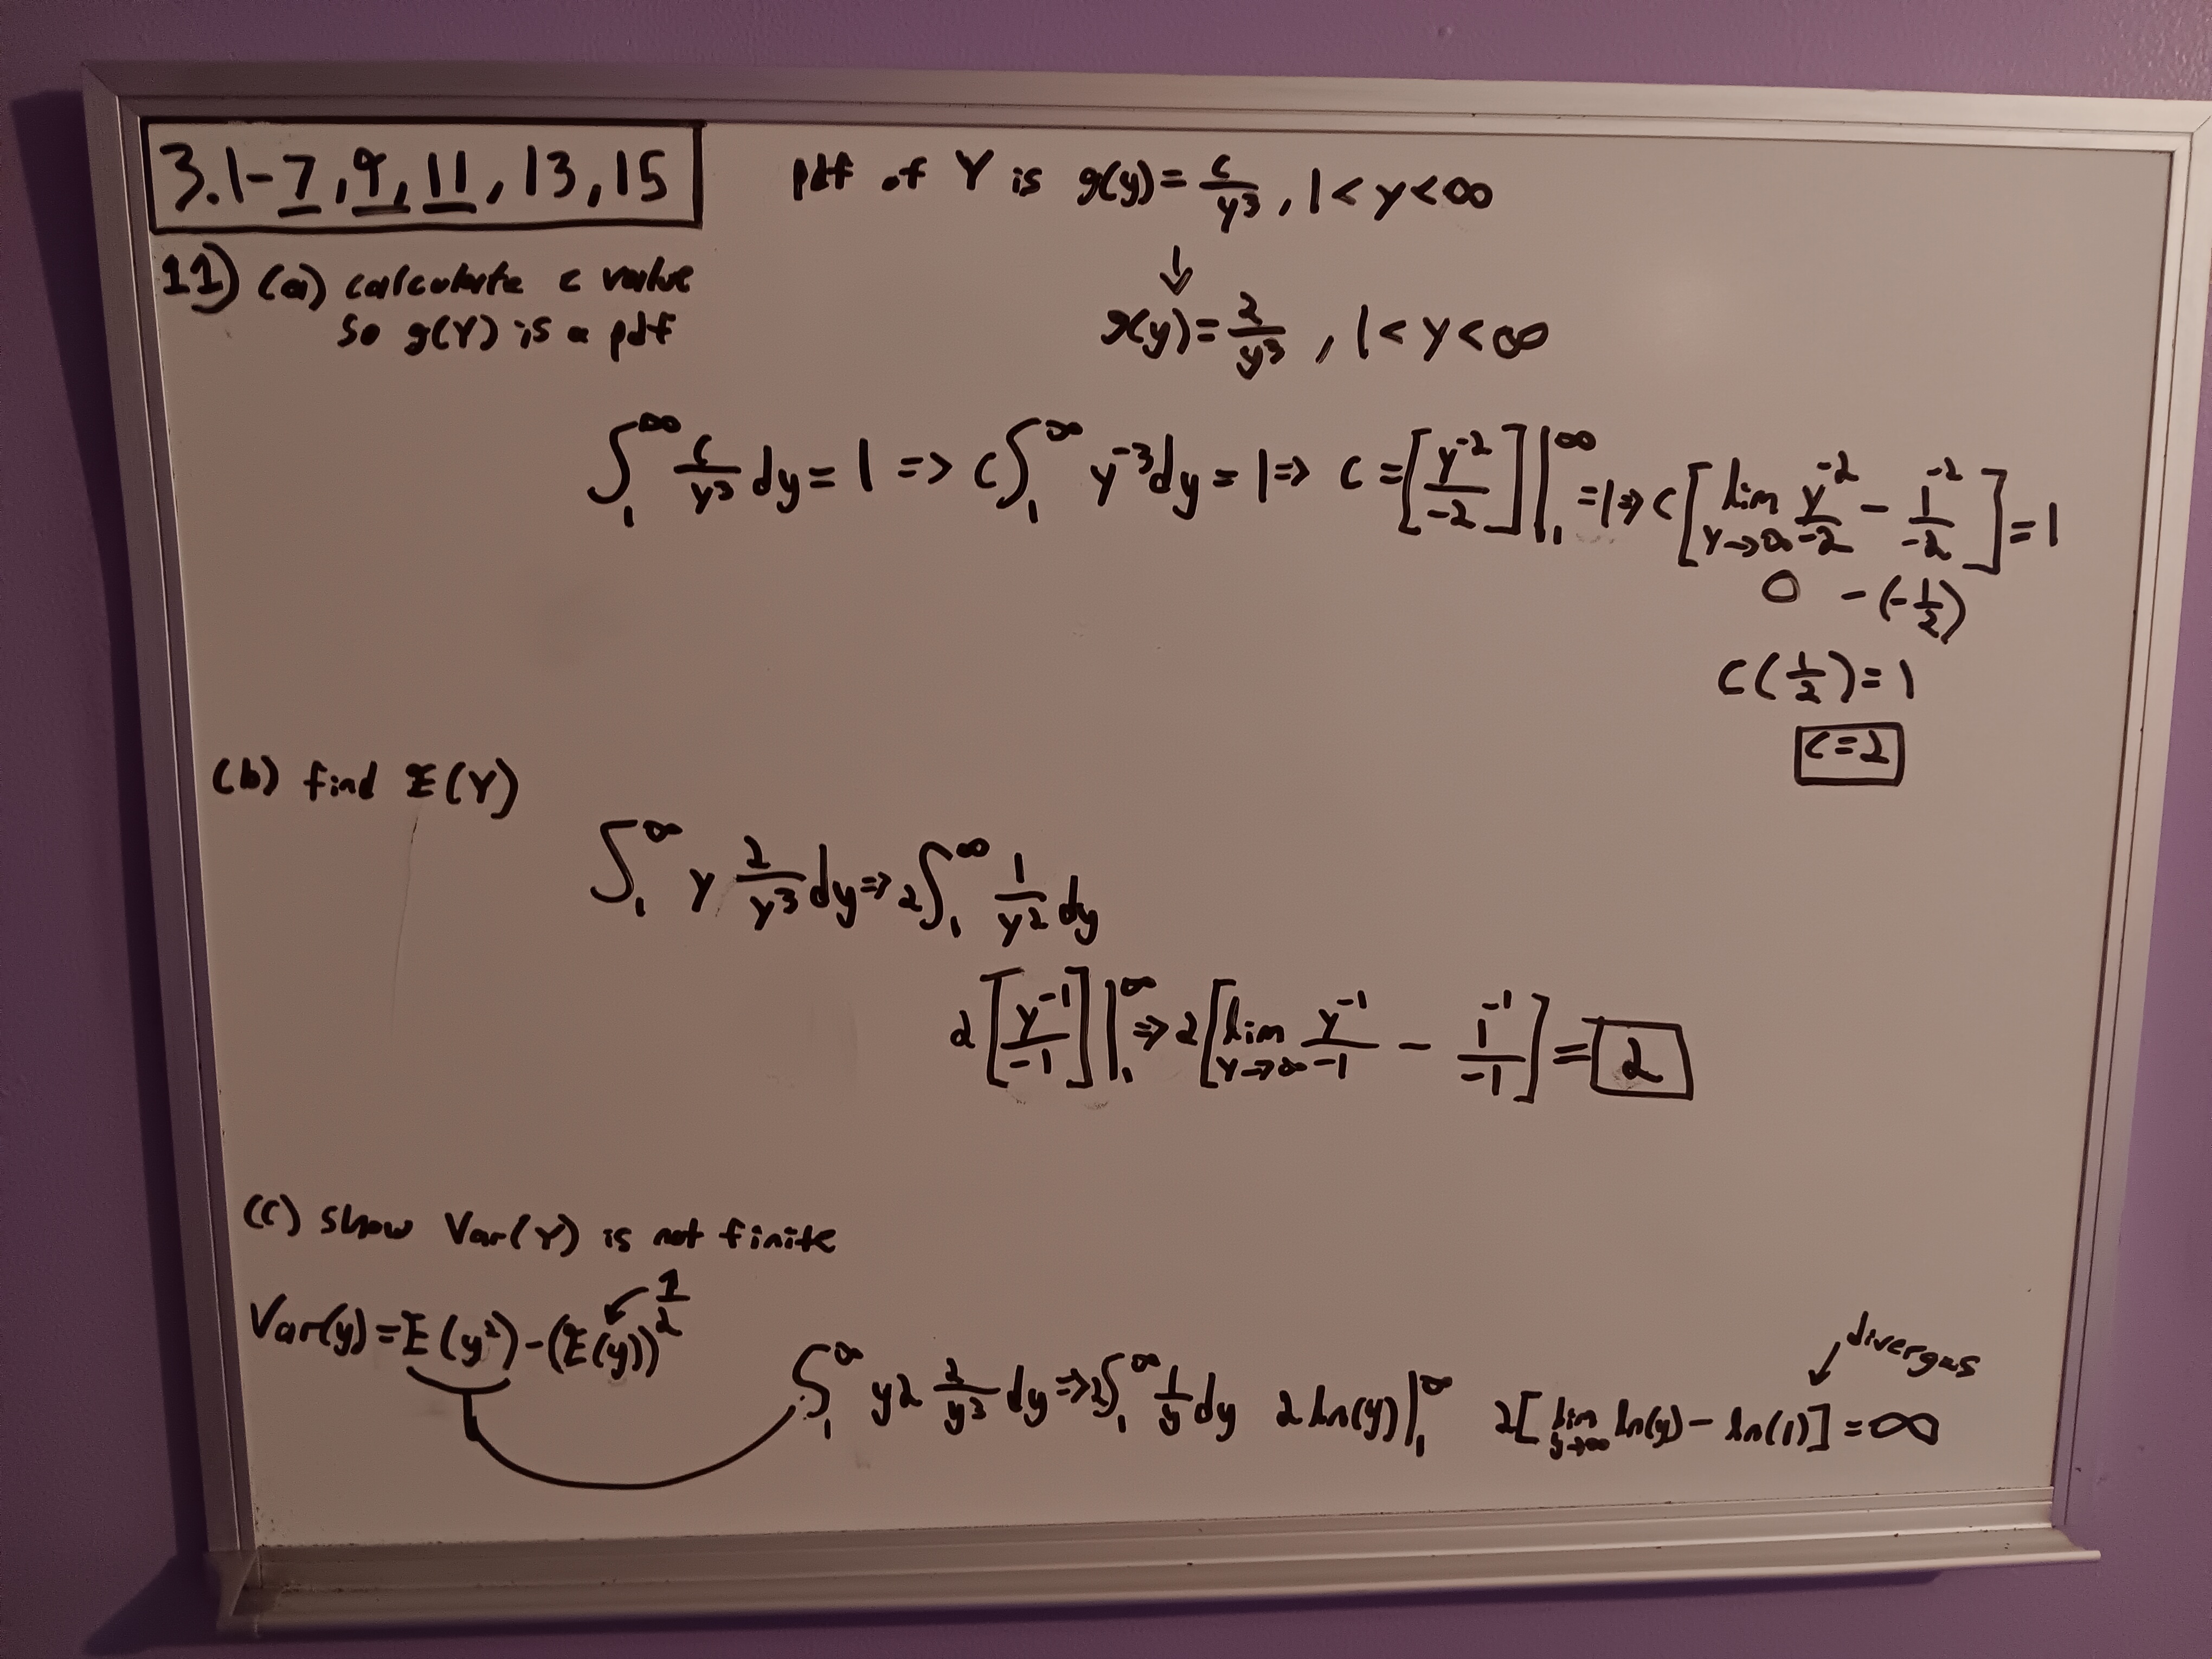 3.1-7, 9, 11, 13, 15
pdf of Y is g(y)= c/y³, 1<y<∞
↓
g(y)= 2/y³, 1<y<∞
11) (a) calculate c value
so g(Y) is a pdf
∫₁^∞ c/y³ dy = 1 => c∫₁^∞ y⁻³dy = 1 => c = [y⁻²/-2]|₁^∞ = 1 => c[lim y→∞ y⁻²/-2 - 1⁻²/-2] = 1
0 -(-1/2)
c(1/2)=1
c=2
(b) find E(Y)
∫₁^∞ y 2/y³ dy => 2∫₁^∞ 1/y² dy
2[y⁻¹/-1]|₁^∞ => 2[lim y→∞ y⁻¹/-1 - 1⁻¹/-1] = 2
(c) show Var(Y) is not finite
Var(y)=E(y²)-(E(y))²
∫₁^∞ y2 2/y³ dy => 2∫₁^∞ 1/y dy 2 ln(y)|₁^∞ 2[lim y→∞ ln(y) - ln(1)] = ∞
diverges